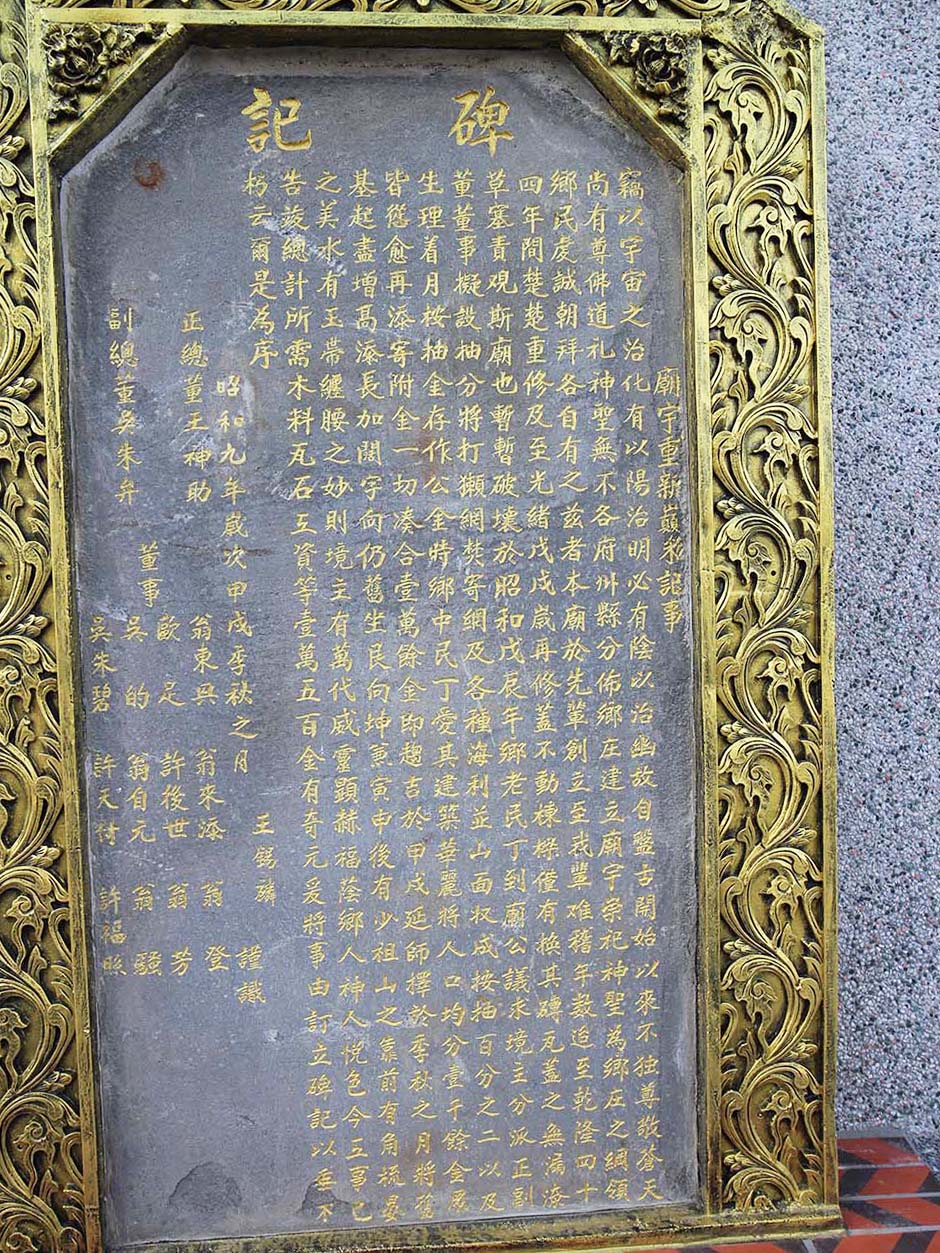 碑記
廟宇重新蘶莊記事
竊以宇宙之治化有以陽治明必有陰以治幽故自盤古開始以來不独尊敬蒼天
尚有尊佛道礼神聖無不各府州縣分佈鄉庄建立廟宇崇祀神聖為鄉庄之綱領
鄉民虔誠朝拜各自有之兹者本廟於先輩創立至我輩难稽年數迨至乾隆四十
四年間楚楚重修及至光緒戊戌歲再修蓋不動棟樑僅有換其磚瓦蓋之無漏海
草塞責覌斯廟也暫暫破壞於昭和戊辰年鄉老民丁到廟公議求境主分派正副
董董事擬設抽分將打獺網焚寄網及各種海利並山面収成按抽百分之二以及
生理着月按抽金存作公金將鄉中民丁愛其建築華麗將人口均分壹千餘金眾
皆慫愈再添寄附金一切凑合壹萬餘金即趨吉於甲戌延師擇於季秋之月將舊
基起盡增高添長加闊字向仍舊坐艮向坤兼寅申後有少祖山之靠前有角梳晏
之美水有玉帶纏腰之妙則境主有萬代威靈顯赫福蔭鄉人神人悦色今五事已
告竣總計所需木料瓦石工資等壹萬五百金有奇元爰將事由訂立碑記以垂不
朽云爾是為序
王錫璘 謹識
昭和九年歲次甲戌季秋之月
正總董王神助
副總董吳朱弁
董事
翁東興 翁來添 翁登
歐足 許後世 翁芳
吳的 翁自元 翁騷
吳朱碧 許天待 許福照